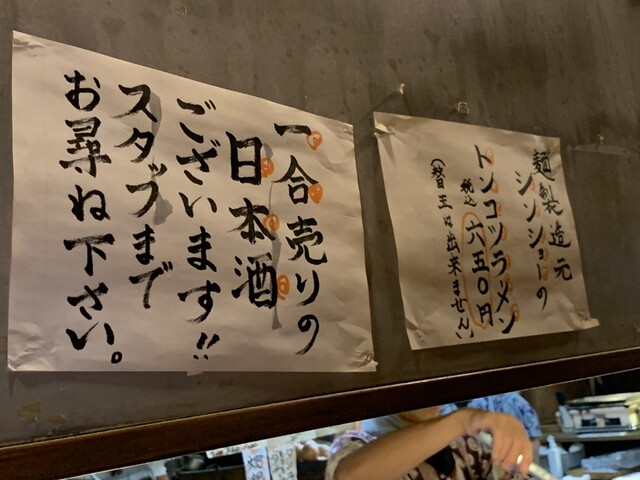 一合売りの
日本酒
ございます!!
スタッフまで
お尋ね下さい。
麺製造元
シンショーの
トンコツラーメン
税込 六五〇円
(替玉は出来ません)